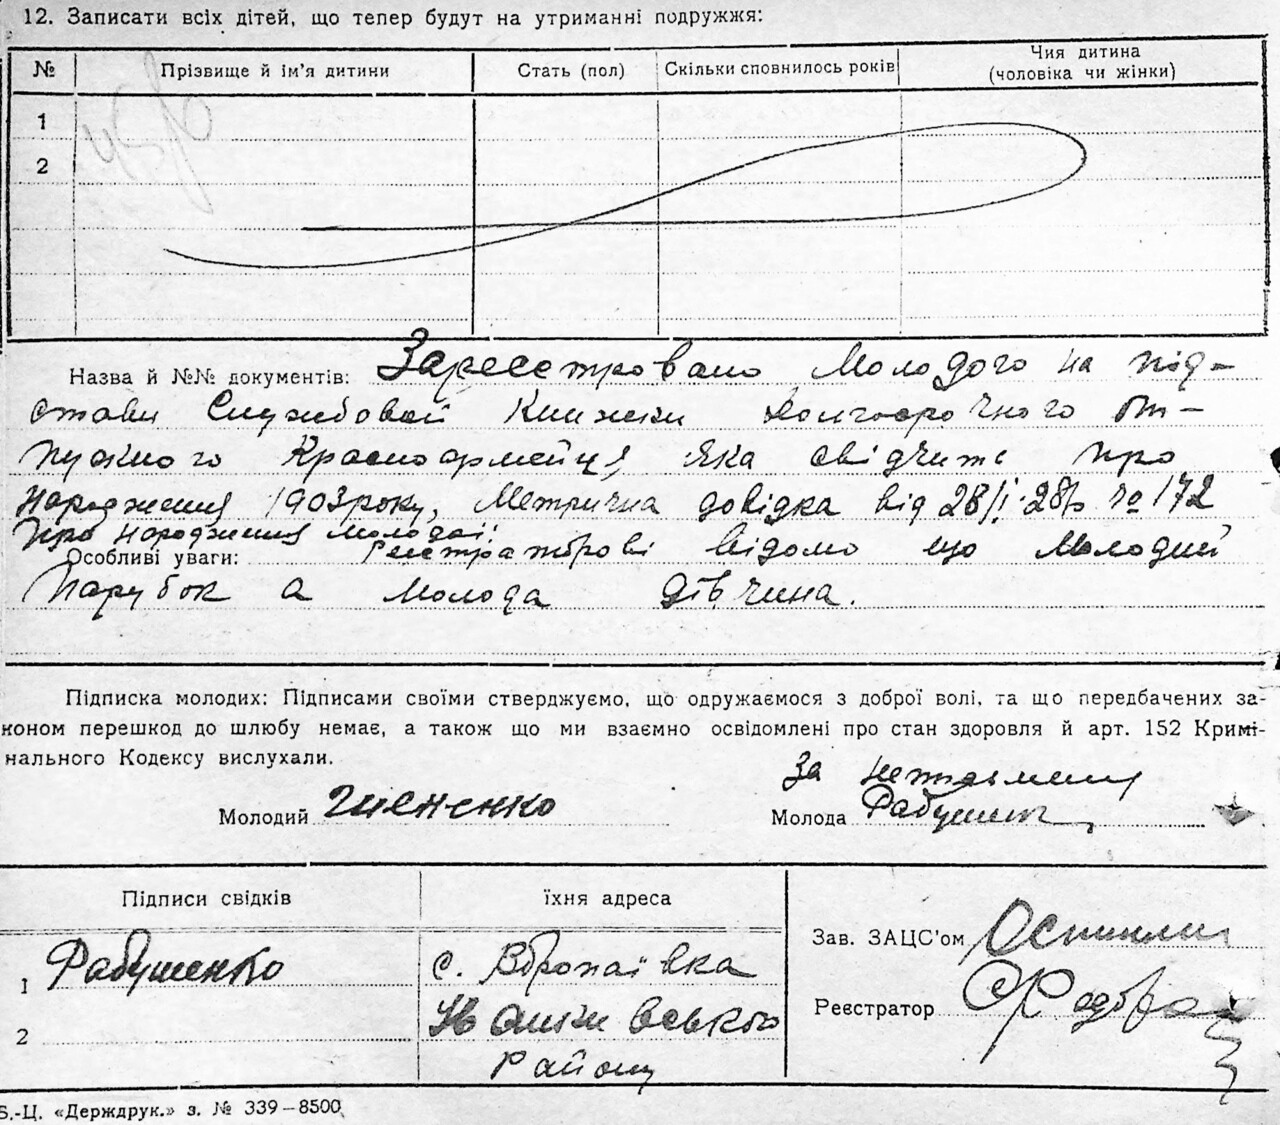 12. Записати всіх дітей, що тепер будут на утриманні подружжя:
№ Прізвище й ім'я дитини Стать (пол) Скільки сповнилось років Чия дитина
(чоловіка чи жінки)
1
2
Назва й №№ документів: Зареєстровано молодого на під-
стави Службовой Книжки долгосрочного от-
пускного Красноармейця, яка свідчить про
народження 1903 року, Метрична довідка від 28/I-28р № 172
Про народження молодої.
Особливі уваги: Реєстраторові відомо що молодий
парубок а молода дівчина.
Підписка молодих: Підписами своїми стверджуємо, що одружаємося з доброї волі, та що передбачених за-
коном перешкод до шлюбу немає, а також що ми взаємно освідомлені про стан здоровля й арт. 152 Кримі-
нального Кодексу вислухали.
За неписьменну
Молодий Молода
Підписи свідків їхня адреса
1 Рабушенко с.
2 району
Зав. ЗАЦС'ом
Реєстратор
Б.-Ц. «Держдрук.» з. № 339–8500